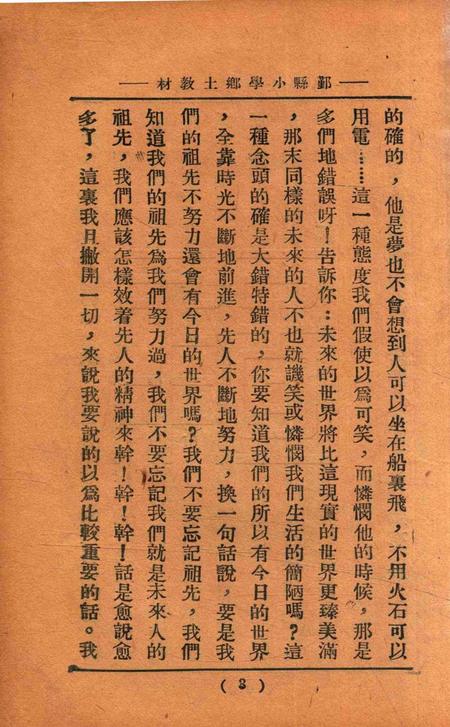 鄞縣小學鄉土教材
的確的，他是夢也不會想到人可以坐在船裏飛，不用火石可以
用電……這一種態度我們假使以爲可笑，而憐憫他的時候，那是
多們地錯誤呀！告訴你：未來的世界將比這現實的世界更臻美滿
，那末同樣的未來的人不也就譏笑或憐憫我們生活的簡陋嗎？這
一種念頭的確是大錯特錯的，你要知道我們的所以有今日的世界
，全靠時光不斷地前進，先人不斷地努力，換一句話說，要是我
們的祖先不努力還會有今日的世界嗎？我們不要忘記祖先，我們
知道我們的祖先爲我們努力過，我們不要忘記我們就是未來人的
祖先，我們應該怎樣效着先人的精神來幹！幹！幹！話是愈說愈
多了，這裏我且撇開一切，來說我要說的以爲比較重要的話。我
(3)